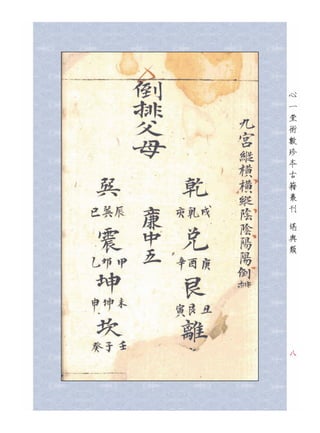 心一堂術數珍本古籍叢刊 堪輿類
八
九宮縱橫橫縱陸陰陽陽倒排
倒排父母
乾
戌乾亥
兌
庚酉辛
艮
丑艮寅
離
廉中五
巽
辰巽巳
震
甲卯乙
坤
未坤申
坎
壬子癸